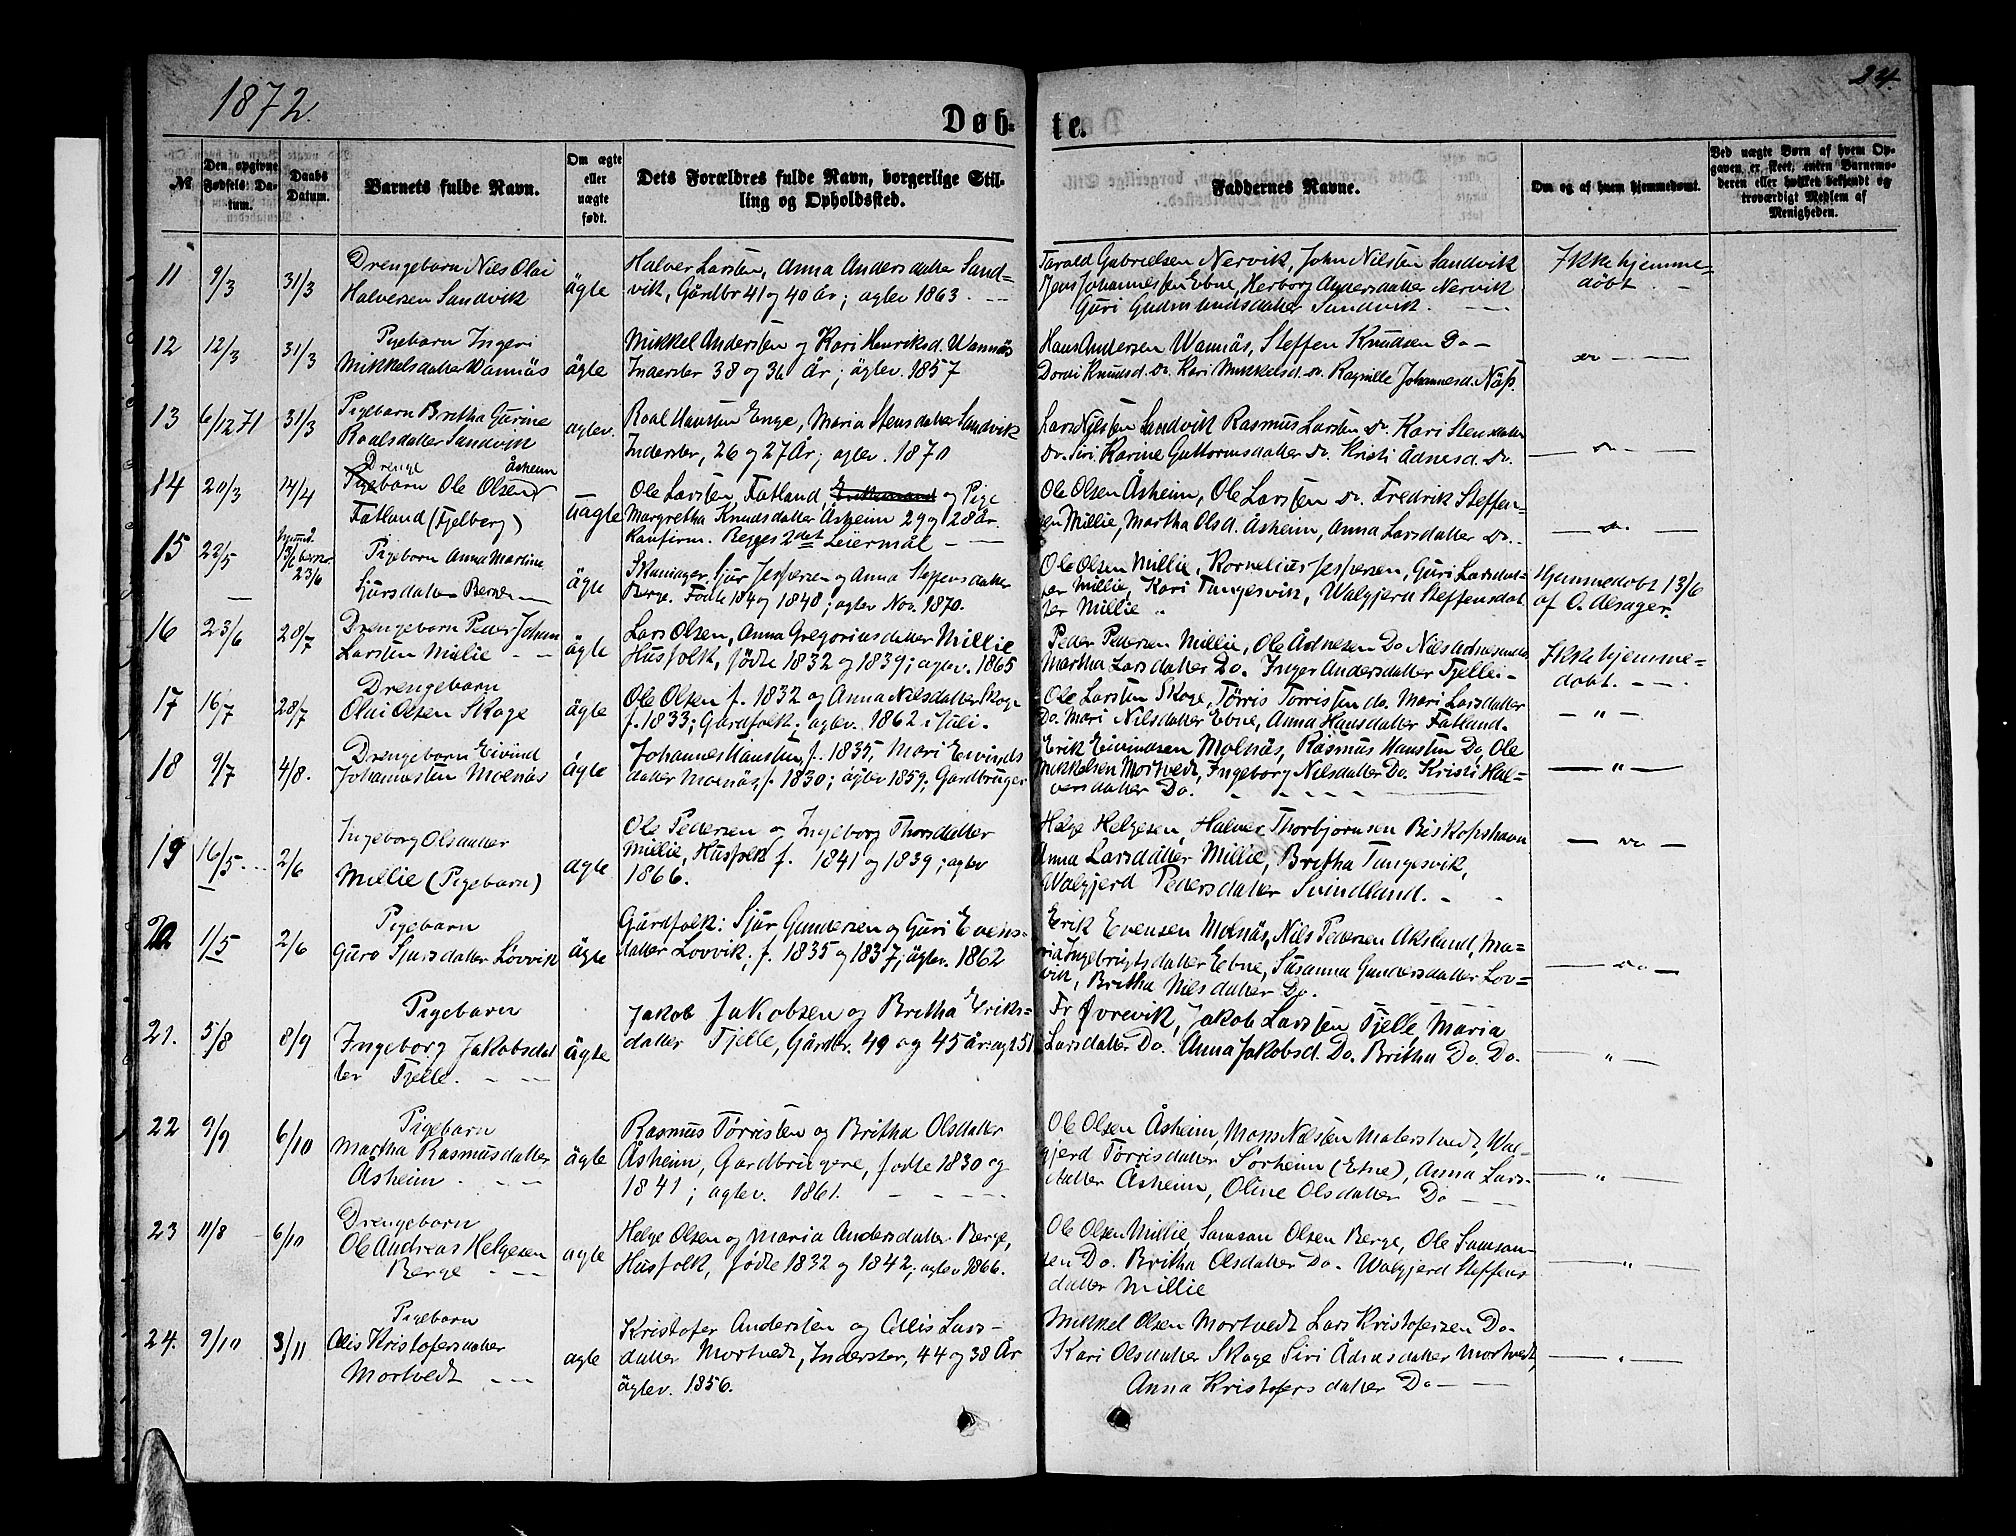 1872.
24.
Døb=
te.
№
Den opgivne Fødsels Datum.
Daabs Datum.
Barnets fulde Navn.
Om ægte eller uægte født.
Dets Forældres fulde Navn, borgerlige Stilling og Opholdssted.
Faddernes Navne.
Om og af hvem hjemmedøbt.
Ved uægte Børn af hvem Opgaven er skeet, enten Barnemoderen eller hvilket bekjendt og troværdigt Medlem af Menigheden.
11 9/3 31/3 Drengebarn Nils Olai
Halversen Sandvik ägte
Halver Larsen, Anna Andersdatter Sand=
vik, Gårdbr 41 og 40 år; ægtev 1863.
Tarald Gabrielsen Nervik, John Nilsen Sandvik
Jens Johannessen Ebne, Herborg Andersdatter Nervik
Guri Gudmundsdatter Sandvik.
Ikke hjemme=
döbt.
12 12/3 31/3 Pigebarn Ingeri
Mikkelsdatter Wannäs ägte
Mikkel Andersen og Kari Henriksd. Wannäs
Inderster 38 og 36 år; ägtev. 1857
Hans Andersen Wannäs, Steffen Knudsen Do
Dordi Knudsd. Do. Kari Mikkelsd. Do. Ragnille Johannesd. Näss.
Do
13 6/12 71 31/3 Pigebarn Britha Gurine
Roalsdatter Sandvik ägtev.
Roal Hansen Enge, Maria Stensdatter Sandvik
Inderster, 26 og 27 År; ægtev. 1870
Lars Nilsen Sandvik Rasmus Larsen Do. Kari Stensdatter
Do. Siri Karine Guttormsdatter Do. Kristi Ådnesd. Do.
Do
14 20/3 14/4 Drenge Åsheim
Pigebarn Ole Olsen
Fatland (Fjelberg) uägte
Ole Larsen, Fatland, Enkemand og Pige
Margretha Knudsdatter Åsheim 29 og 28 år.
Konfirm. Begges 2det Leiermål
Ole Olsen Åsheim, Ole Larsen Do. Fredrik Steffen-
sen Millie, Martha Olsd. Åsheim, Anna Larsdatter Do.
Do.
15 22/5 23/6 Pigebarn Anna Martine
Sjursdatter Berge ägte
Skomager Sjur Jespersen og Anna Steffensdatter
Berge. Födte 184 og 1848; ægtev Nov. 1870.
Ole Olsen Millie, Kornelius Jespersen, Guri Larsdat=
ter Millie, Kari Tungesvik, Walgjerd Steffensdat
ter Millie
Hjemmedøbt 13/6
af O. Alsager.
16 23/6 28/7 Drengebarn Peder Johan
Larsen Millie ägte
Lars Olsen, Anna Gregoriusdatter Millie
Husfolk, födte 1832 og 1839; ægtev. 1865
Peder Pedersen Millie, Ole Ådnesen Do Nils Adnesen Do
Martha Larsdatter Do. Inger Andersdatter Tjelle
Ikke hjemme=
døbt.
17 16/7 28/7 Drengebarn
Olai Olsen Skoge ägte
Ole Olsen f. 1832 og Anna Nilsdatter Skoge
f. 1833; Gårdfolk, ægtev. 1862 i Juli.
Ole Larsen Skoge, Törris Torrissen do. Mari Larsdatter
Do. Mari Nilsdatter Ebne, Anna Hansdatter Fatland.
"
18 9/7 4/8. Drengebarn Eivind
Johannessen Molnäs ägte
Johannes Hansen, f. 1835, Mari Eivinds
datter Molnäs, f. 1830; ægtev 1859; Gardbruger
Erik Eivindsen Molnäs, Rasmus Hansen Do, Ole
Mikkelsen Mortvedt, Ingeborg Nilsdatter Do. Kristi Hal=
versdatter Do.
"
19 16/5 2/6 Ingeborg Olsdatter
Millie (Pigebarn) ægte
Ole Pedersen og Ingeborg Thorsdatter
Millie, Husfolk f. 1841 og 1839; ægtev
1866.
Helge Helgesen, Halver Thorbjornsen Biskopshavn
Anna Larsdatter Millie, Britha Tungesvik,
Walgjerd Pedersdatter Svindland.
Do
20 1/5 2/6 Pigebarn
Guro Sjursdatter Lovvik ägte
Gårdfolk: Sjur Gundersen og Guri Evens-
datter Lovvik; f. 1835 og 1837; ägtev. 1862
Erik Evensen Molnäs, Nils Pedersen Aksland, Ma=
ria Ingebrigtsdatter Ebne, Susanna Gundersdatter Lov=
vik, Britha Nilsdatter Do.
Do
21. 5/8 8/9 Pigebarn
Ingeborg Jakobsdat
ter Tjelle. ägte
Jakob Jakobsen og Britha Eriks=
datter Tjelle, Gårdbr. 49 og 45 år ægt 51
Fr Øvrevik, Jakob Larsen Tjelle, Maria
Larsdatter Do. Anna Jakobsd. Do. Britha Do. Do.
"
22 9/9 6/10 Pigebarn
Martha Rasmusdatter
Åsheim ägte
Rasmus Törrissen og Britha Olsdatter
Åsheim, Gardbrugere, fodte 1830 og
1841; ægtev. 1861.
Ole Olsen Åsheim, Mons Nilsen Materstvedt, Wal-
gjerd Törrisdatter Sörheim (Etne), Anna Lars-
datter Åsheim, Oline Olsdatter Do
"
23 11/8 6/10 Drengebarn
Ole Andreas Helgesen
Berge ægte
Helge Olsen og Maria Andersdatter Berge,
Husfolk, födte 1832 og 1842; ægtev 1866.
Ole Olsen Millie, Samson Olsen Berge, Ole Samson-
sen Do. Britha Olsdatter Do. Walgjerd Steffens
datter Millie
"
24. 9/10 3/11 Pigebarn
Alis Kristofersdatter
Mortvedt ægte
Kristofer Andersen og Alis Lars-
datter Mortvedt, Inderster, 44 og 38 År
ägtev. 1856.
Mikkel Olsen Mortvedt Lars Kristofersen Do
Kari Olsdatter Skoge Siri Ådnesdatter Mortvedt,
Anna Kristofersdatter Do
"